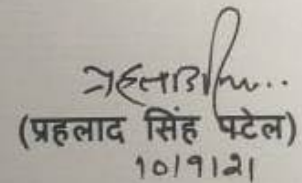 (प्रहलाद सिंह पटेल)
10/9/21